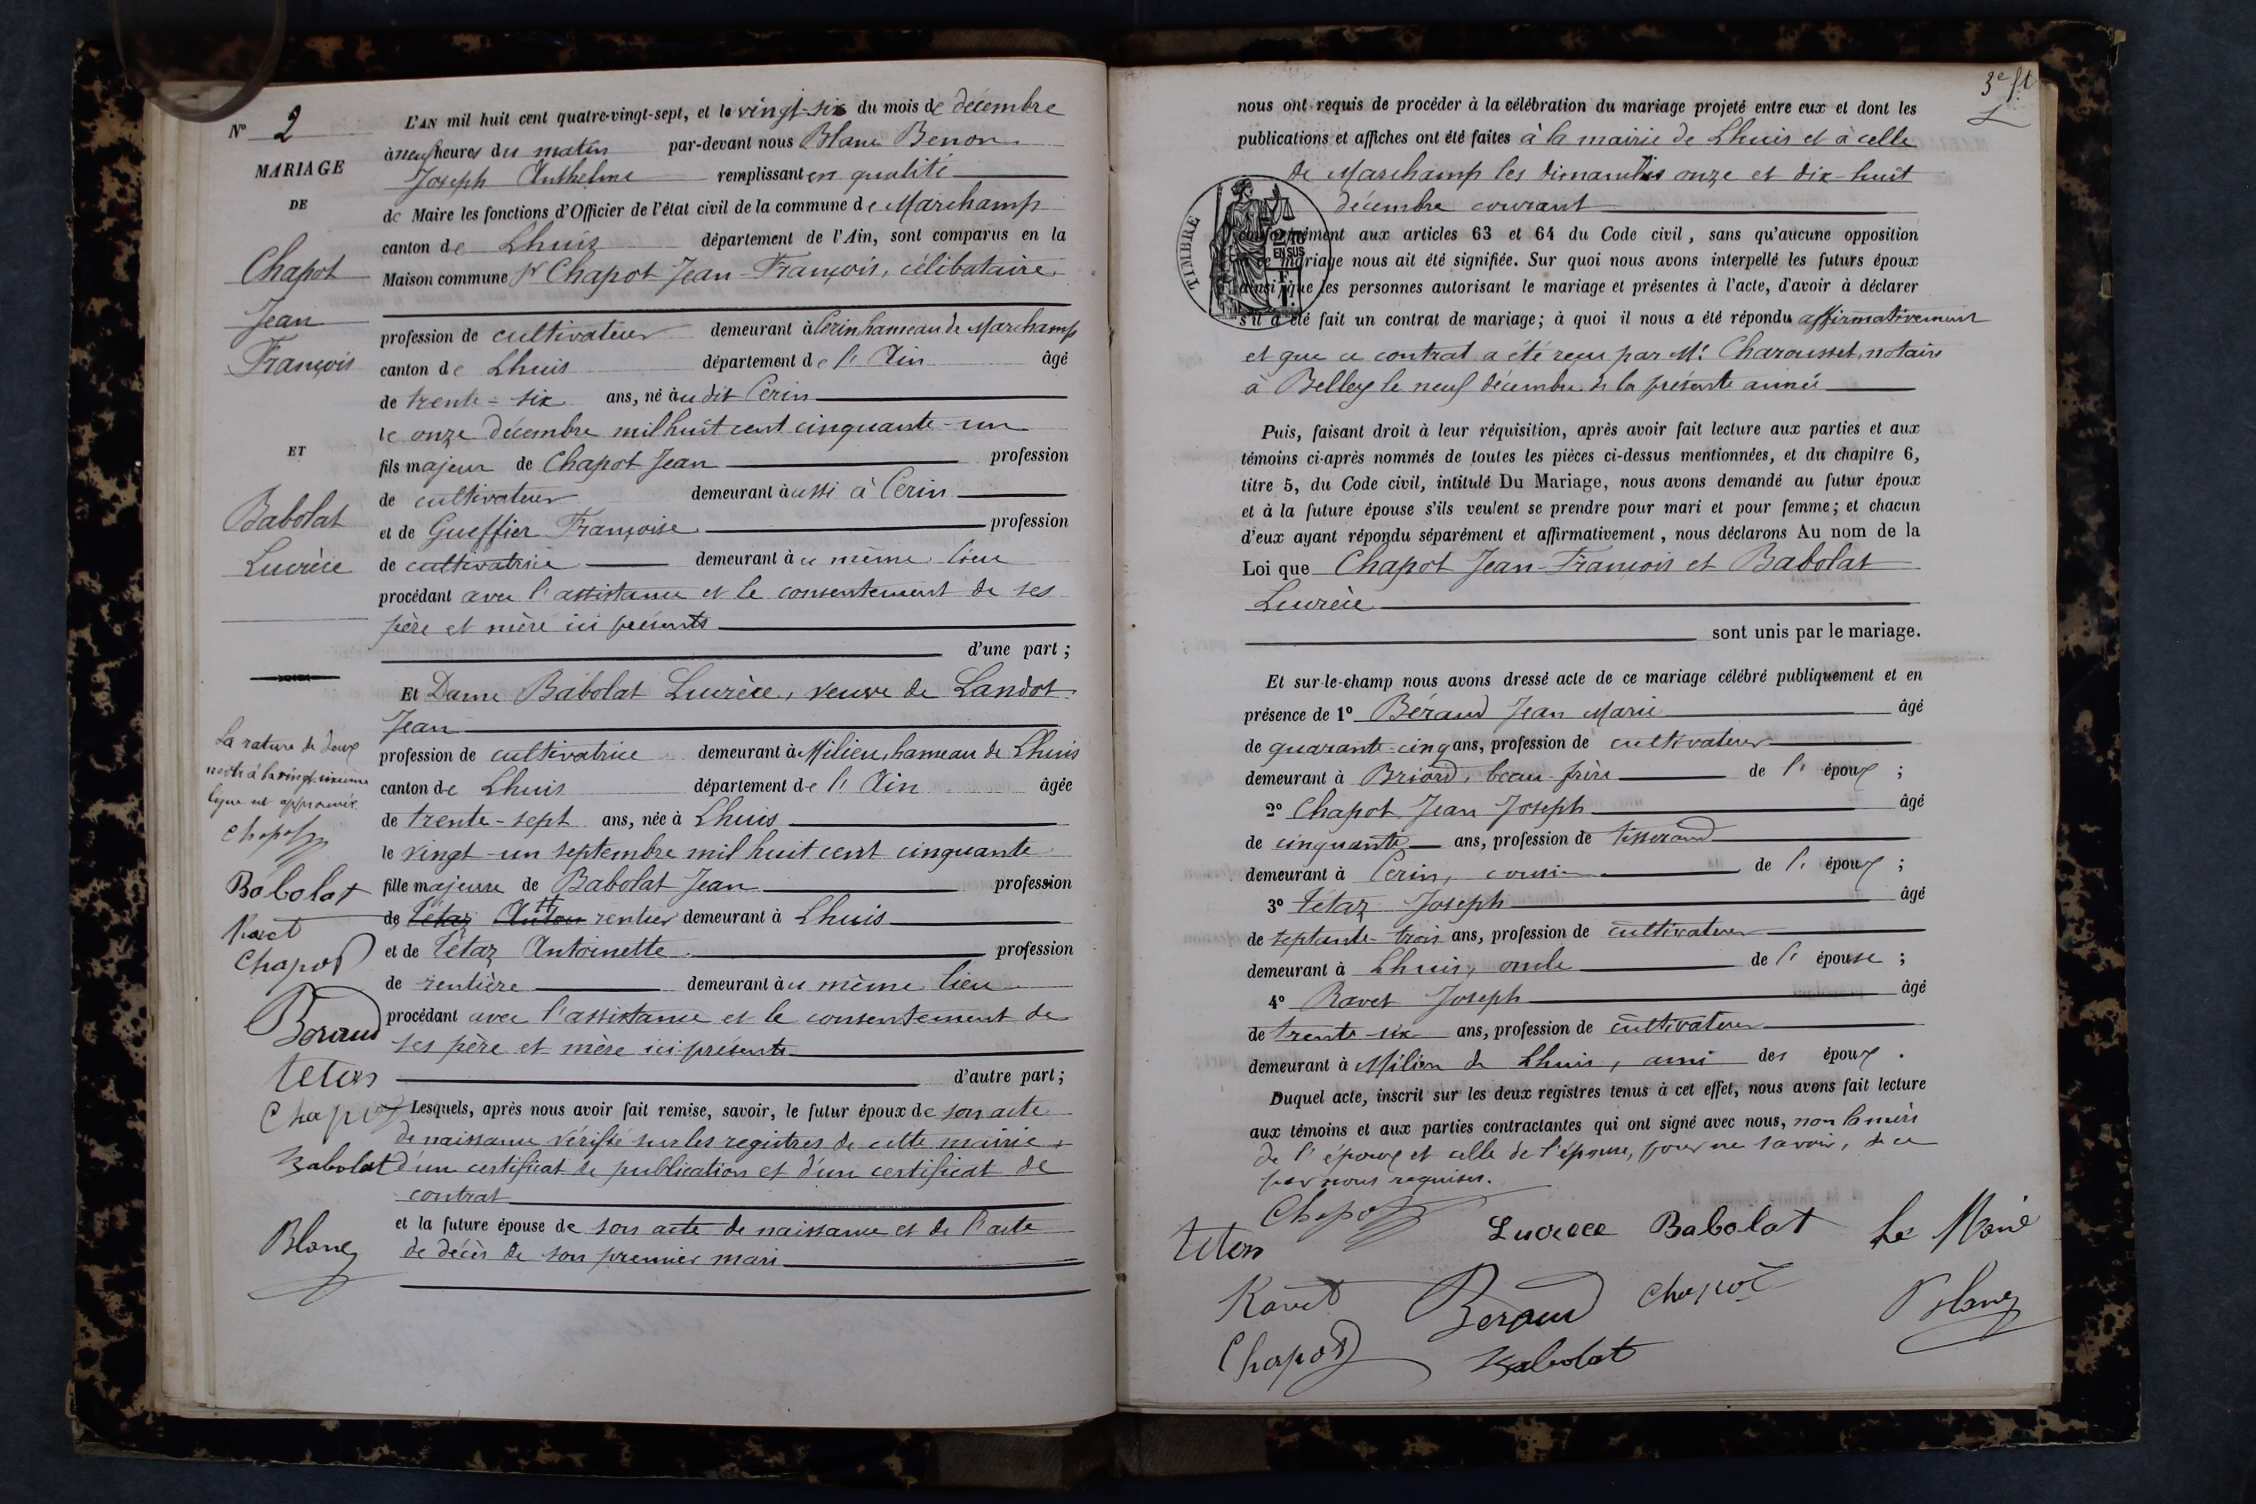 N° 2
MARIAGE
DE
Chapot
Jean
François
ET
Babolat
Lucrèce
La rature de deux
mots à la vingt-unième
ligne est approuvée
Chapot
Babolat
Ravet
Chapot
Beraud
tetaz
Chapot
Babolat
Blanc
L'AN mil huit cent quatre-vingt-sept, et le vingt-six du mois de décembre
à neuf heures du matin par-devant nous Blanc Benon
Joseph Anthelme remplissant en qualité
de Maire les fonctions d'Officier de l'état civil de la commune de Marchamp
canton de Lhuis département de l'Ain, sont comparus en la
Maison commune Sr Chapot Jean-François, célibataire
profession de cultivateur demeurant à Cerin hameau de Marchamp
canton de Lhuis département de l'Ain âgé
de trente-six ans, né audit Cerin
le onze décembre mil huit cent cinquante-un
fils majeur de Chapot Jean profession
de cultivateur demeurant aussi à Cerin
et de Gueffier Françoise profession
de cultivatrice demeurant au même lieu
procédant avec l'assistance et le consentement de ses
père et mère ici présents
d'une part ;
Et Dame Babolat Lucrèce, veuve de Landot
Jean
profession de cultivatrice demeurant à Milieu, hameau de Lhuis
canton de Lhuis département de l'Ain âgée
de trente-sept ans, née à Lhuis
le vingt-un septembre mil huit cent cinquante
fille majeure de Babolat Jean profession
de Tétaz Anton rentier demeurant à Lhuis
et de Tétaz Antoinette profession
de rentière demeurant au même lieu
procédant avec l'assistance et le consentement de
ses père et mère ici présents
d'autre part ;
Lesquels, après nous avoir fait remise, savoir, le futur époux de son acte
de naissance vérifié sur les registres de cette mairie,
d'un certificat de publication et d'un certificat de
contrat
et la future épouse de son acte de naissance et de l'acte
de décès de son premier mari
3e ft
nous ont requis de procéder à la célébration du mariage projeté entre eux et dont les
publications et affiches ont été faites à la mairie de Lhuis et à celle
de Marchamp les dimanches onze et dix-huit
décembre courant
TIMBRE
2/10
EN SUS
conformément aux articles 63 et 64 du Code civil, sans qu'aucune opposition
à ce mariage nous ait été signifiée. Sur quoi nous avons interpellé les futurs époux
ainsi que les personnes autorisant le mariage et présentes à l'acte, d'avoir à déclarer
s'il a été fait un contrat de mariage; à quoi il nous a été répondu affirmativement
et que ce contrat a été reçu par Me Charousset, notaire
à Belley le neuf décembre de la présente année
Puis, faisant droit à leur réquisition, après avoir fait lecture aux parties et aux
témoins ci-après nommés de toutes les pièces ci-dessus mentionnées, et du chapitre 6,
titre 5, du Code civil, intitulé Du Mariage, nous avons demandé au futur époux
et à la future épouse s'ils veulent se prendre pour mari et pour femme; et chacun
d'eux ayant répondu séparément et affirmativement, nous déclarons Au nom de la
Loi que Chapot Jean-François et Babolat
Lucrèce
sont unis par le mariage.
Et sur-le-champ nous avons dressé acte de ce mariage célébré publiquement et en
présence de 1° Béraud Jean Marie âgé
de quarante-cinq ans, profession de cultivateur
demeurant à Briord, beau-frère de l'époux ;
2° Chapot Jean Joseph âgé
de cinquante ans, profession de tisserand
demeurant à Cerin, cousin de l'époux ;
3° Tétaz Joseph âgé
de septante-trois ans, profession de cultivateur
demeurant à Lhuis, oncle de l'épouse ;
4° Ravet Joseph âgé
de trente-six ans, profession de cultivateur
demeurant à Milieu de Lhuis, ami des époux.
Duquel acte, inscrit sur les deux registres tenus à cet effet, nous avons fait lecture
aux témoins et aux parties contractantes qui ont signé avec nous, non la mère
de l'époux et celle de l'épouse, pour ne savoir, de ce
par nous requises.
Chapot
tetaz
Lucrece Babolat
Le Maire
Ravet
Beraud
Chapot
Blanc
Chapot
Babolat